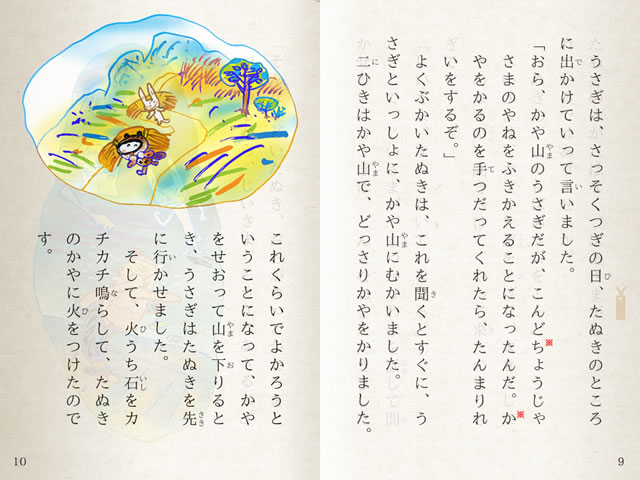 うさぎは、さっそくつぎの日、たぬきのところ
に出かけていって言いました。
「おら、かや山のうさぎだが、こんど※ちょうじゃ
さまのやねをふきかえることになったんだ。※か
やをかるのを手つだってくれたら、たんまりれ
いをするぞ。」
よくぶかいたぬきは、これを聞くとすぐに、う
さぎといっしょに、かや山にむかいました。
二ひきはかや山で、どっさりかやをかりました。
9
これくらいでよかろうと
いうことになって、かや
をせおって山を下りると
き、うさぎはたぬきを先
に行かせました。
そして、火うち石をカ
チカチ鳴らして、たぬき
のかやに火をつけたので
す。
10